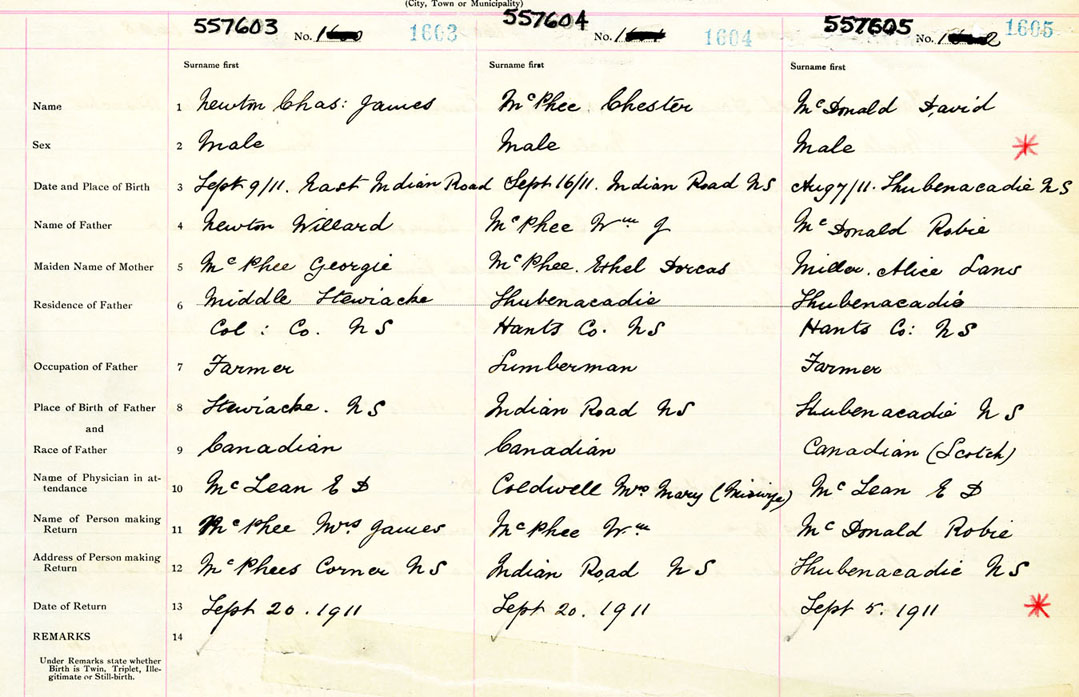 (City, Town or Municipality)
557603 No. 1603
557604 No. 1604
557605 No. 1605
Surname first Surname first Surname first
Name 1 Newton Chas: James McPhee Chester McDonald David
Sex 2 Male Male Male *
Date and Place of Birth 3 Sept 9/11. East Indian Road Sept 16/11. Indian Road NS Aug 7/11. Shubenacadie NS
Name of Father 4 Newton Willard McPhee Wm J McDonald Robie
Maiden Name of Mother 5 McPhee Georgie McPhee. Ethel Dorcas Alice
Residence of Father 6 Middle Stewiacke Shubenacadie Shubenacadie
Col: Co. NS Hants Co. NS Hants Co: NS
Occupation of Father 7 Farmer Lumberman Farmer
Place of Birth of Father 8 Stewiacke. NS Indian Road NS Shubenacadie NS
and
Race of Father 9 Canadian Canadian Canadian (Scotch)
Name of Physician in at-
tendance 10 McLean E D Coldwell Mrs Mary (Midwife) McLean E D
Name of Person making
Return 11 McPhee Mrs James McPhee Wm McDonald Robie
Address of Person making
Return 12 McPhees Corner NS Indian Road NS Shubenacadie NS
Date of Return 13 Sept 20. 1911 Sept 20. 1911 Sept 5. 1911 *
REMARKS 14
Under Remarks state whether
Birth is Twin, Triplet, Ille-
gitimate or Still-birth.